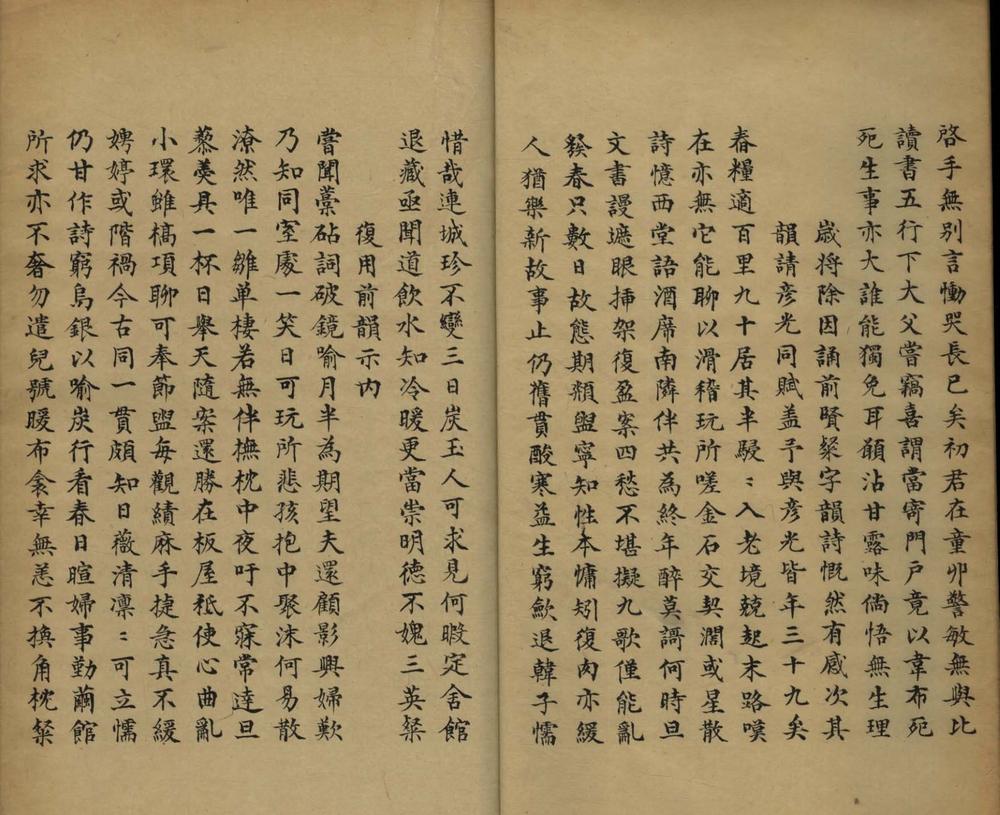 啓手無別言慟哭長已矣初君在童丱警敏無與比
讀書五行下大父嘗竊喜謂當寄門戶竟以韋布死
死生事亦大誰能獨免耳願沾甘露味倘悟無生理
歲將除因誦前賢粲字韻詩慨然有感次其
韻請彥光同賦盖予與彥光皆年三十九矣
春糧適百里九十居其半駸〻入老境兢起末路嘆
在亦無它能聊以滑稽玩所嗟金石交契濶或星散
詩憶西堂語酒席南隣伴共為終年醉莫謌何時旦
文書謾遮眼揷架復盈案四愁不堪擬九歌僅能亂
發春只數日故態期頮盥寧知性本慵矧復肉亦緩
人猶樂新故事止仍舊貫酸寒益生窮歛退韓子懦
惜哉連城珍不變三日炭玉人可求見何暇定舍館
退藏亟聞道飲水知冷暖更當崇明德不媿三英粲
復用前韻示内
嘗聞藁砧詞破鏡喻月半為期望夫還顧影興婦歎
乃知同室處一笑日可玩所悲孩抱中聚沫何易散
潦然唯一雛单棲若無伴撫枕中夜吁不寐常達旦
藜羹具一杯日舉天隨案還勝在板屋秪使心曲亂
小環雖槁項聊可奉節盥每觀績麻手捷急真不緩
娉婷或階禍今古同一貫頗知日薇清凛〻可立懦
仍甘作詩窮烏銀以喻炭行看春日暄婦事勤繭館
所求亦不奢勿遣兒號暖布衾幸無恙不換角枕粲